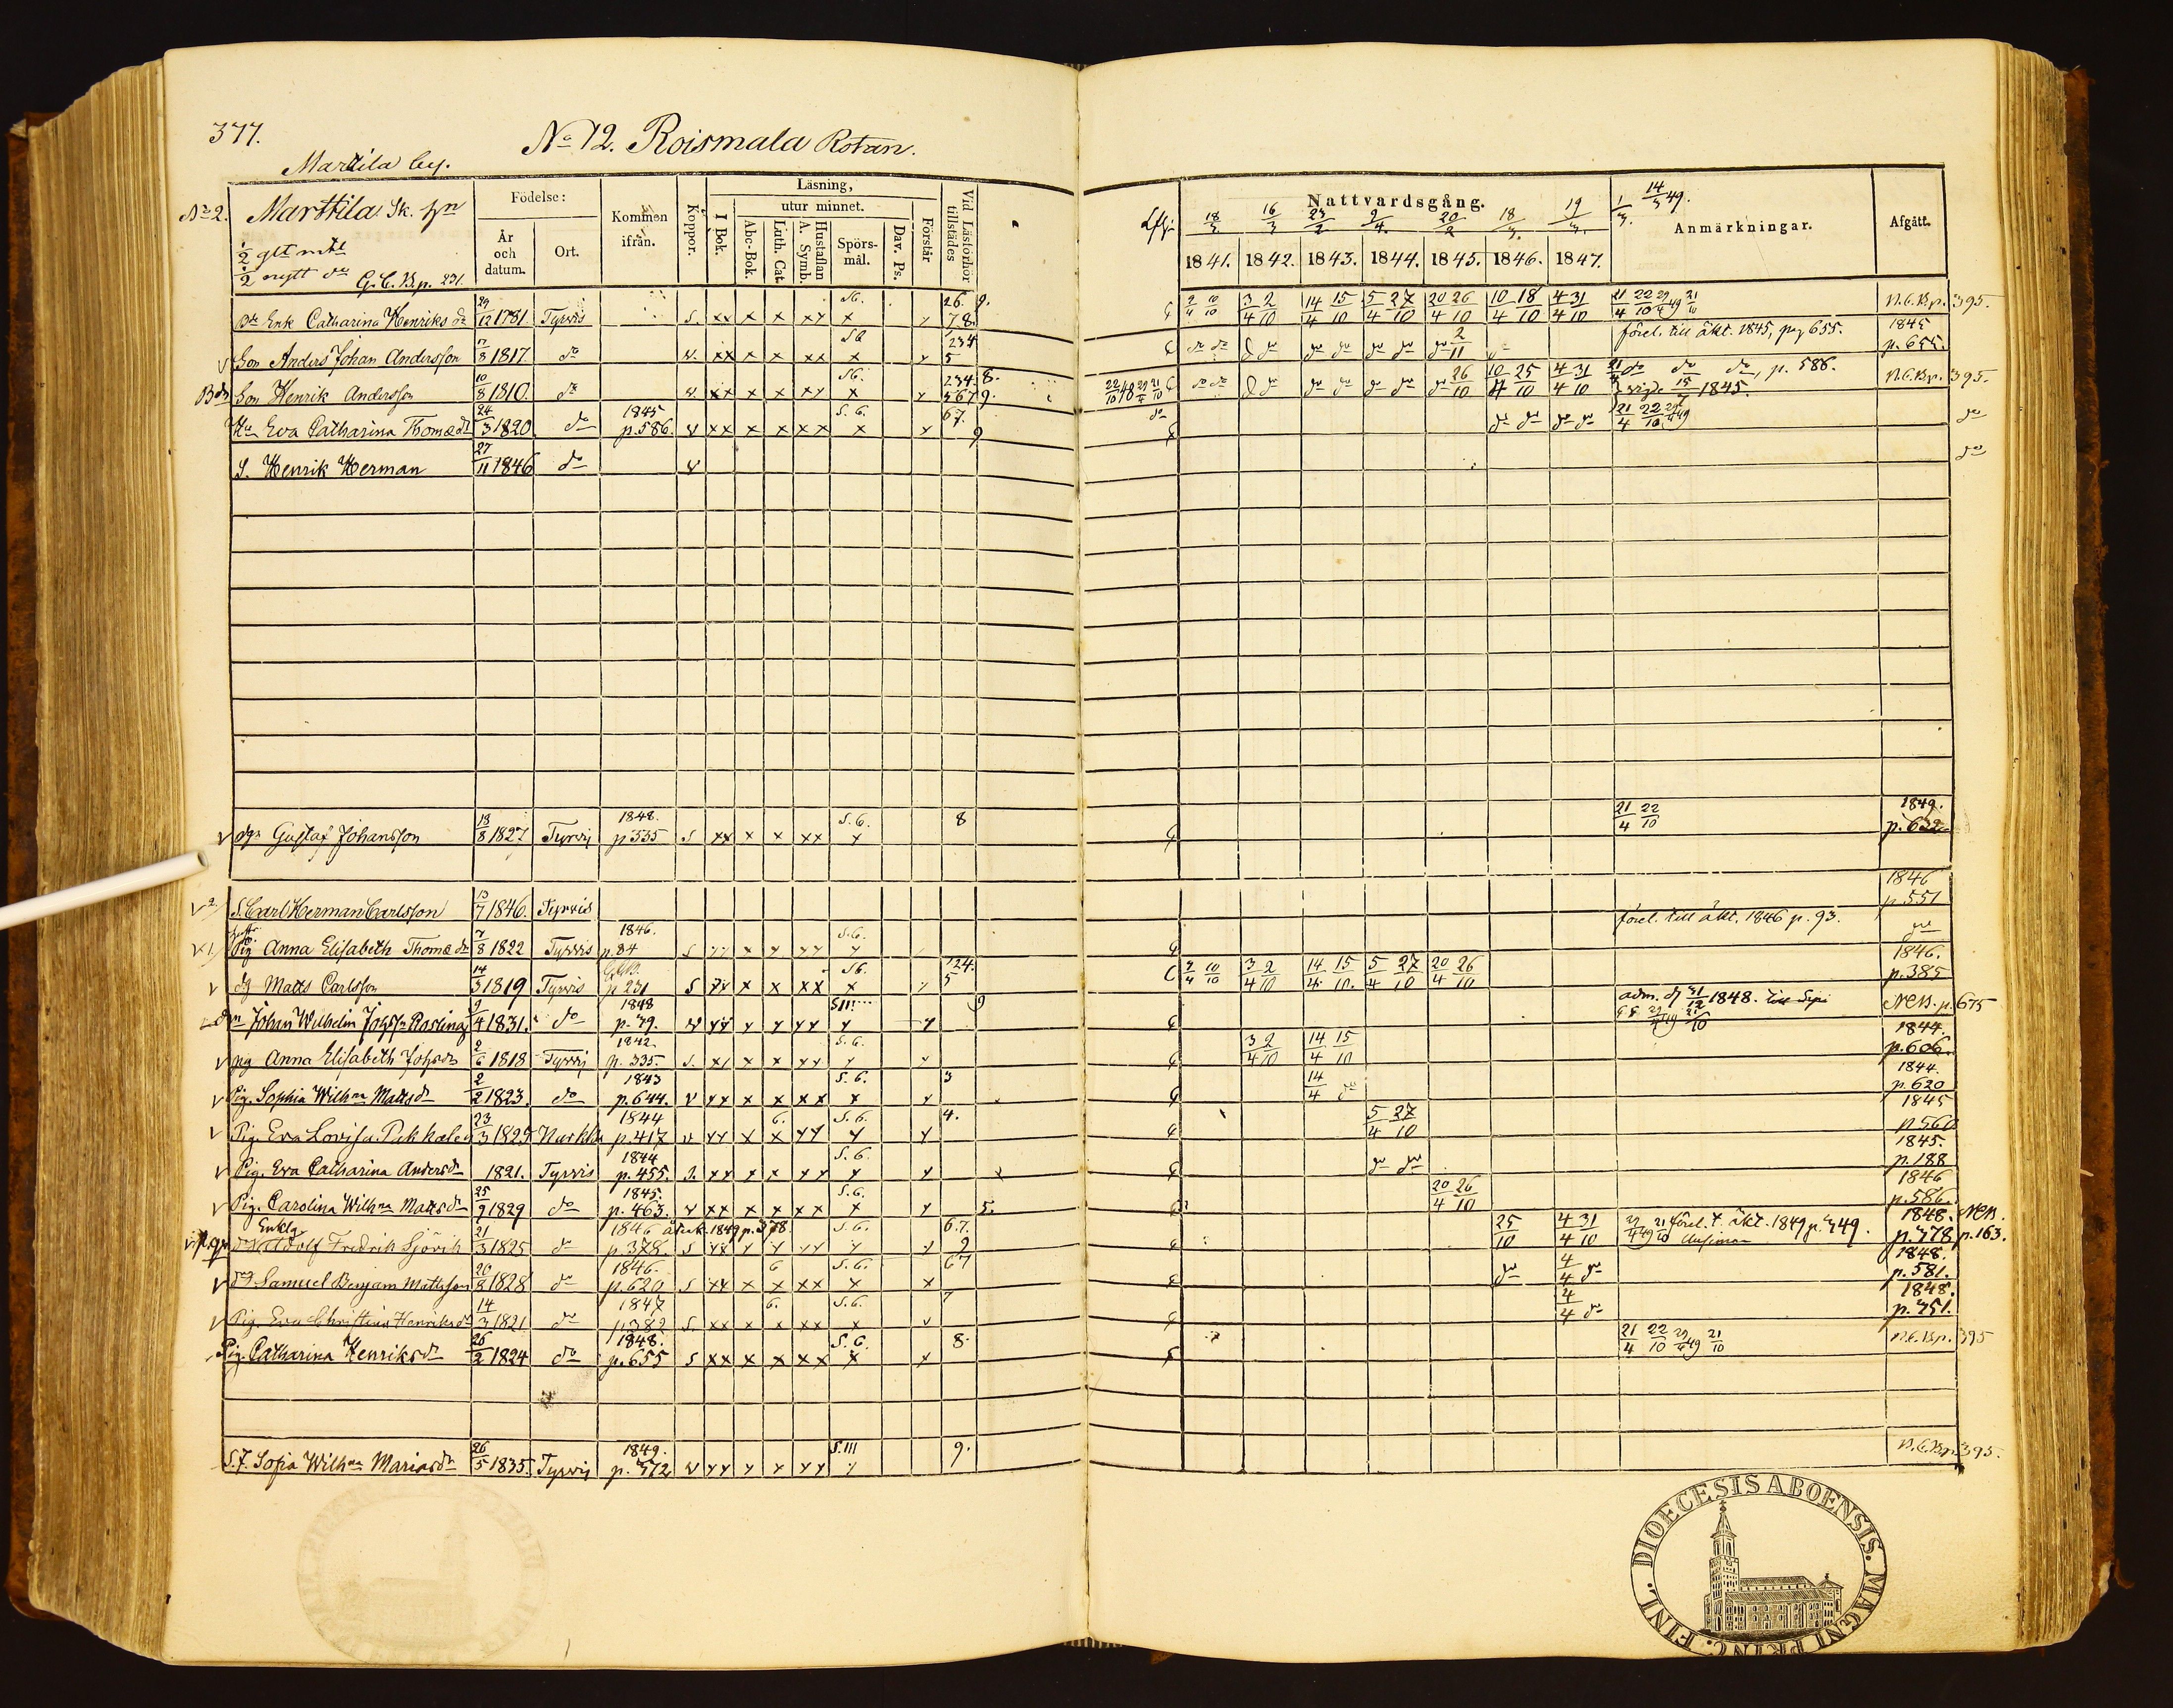 377.
No 12. Roismala Rotan.
Marttila by.
No 2. Marttila Sk. hn
1/2 glt mtl
1/2 nytt do G.C.B.p. 231.
Födelse:
År och datum.
Ort.
Kommen ifrån.
Koppor.
Läsning,
I Bok.
utur minnet.
Abc-Bok.
Luth. Cat.
Hustaflan A. Symb.
Spörsmål.
Dav. Ps.
Förstår
Vid Läsförhör tillstädes
Nattvardsgång.
18/3. 16/3 23/2 9/4. 20/2 18/3. 19/3. 1/3. 14/3 49.
1841. 1842. 1843. 1844. 1845. 1846. 1847.
Anmärkningar.
Afgått.
Enk Catharina Henriks dr 29/12 1781. Tyrvis S. xx x x xx x S6. 26. 9. 78. 3/4 2/10 14/4 15/10 5/4 27/10 20/4 26/10 10/4 18/10 4/4 31/10 21/4 22/10 21/10 N.C.B.p. 395.
v Son Anders Johan Andersson 7/8 1817. do v. xx x x xx x S6 234 5 do do do do do do do 2/11 förel. till äkt. 1845, pag 655. 1845 p. 655.
Bdn Son Henrik Andersson 10/8 1810. do v. xx x x xx x S6. 234. 8. 567 9. do do do do do do 26/10 10/4 25/10 4/4 31/10 21/4 do do do, p. 586. vigde 15/7 1845. N.C.B.p. 395.
Hu Eva Catharina Thomædr 24/3 1820. do 1845 p. 586. v xx x x xx x S. 6. 67. 9 do do do do 21/4 22/10 do
S. Henrik Herman 27/11 1846 do v do
v dgn Gustaf Johansson 18/8 1827 Tyrvis 1848. p 335 S xx x x xx x S. 6. 8 21/4 22/10 1849. p. 632
v 2. S. Carl Herman Carlsson 13/7 1846. Tyrvis 1846 p. 551
v 1. Pig Anna Elisabeth Thomædr 7/8 1822 Tyrvis 1846. p. 84 S xx x x xx x S. 6. förel. till äkt. 1846 p. 93. do
v dg Matts Carlsson 14/3 1819 Tyrvis G.C.B. p 231 S xx x x xx x S6. 124. 5 3/4 2/10 14/4 15/10. 5/4 27/10 20/4 26/10 1846. p. 385
dgn Johan Wilhelm Johsson Rosling 9/4 1831. do 1848 p. 79. v xx x x xx x SIII 9 adm. d 31/12 1848. N.C.B. p. 675
v pig Anna Elisabeth Johsdr 2/6 1818 Tyrvis 1842. p. 335. S. xx x x xx x S. 6. 3/4 2/10 14/4 15/10 1844. p. 606.
v Pig. Sophia Wilhna Mattsdr 2/2 1823. do 1843 p. 644. v xx x x xx x S. 6. 3 14/4 do 1844. p. 620
v Pig. Eva Lovisa Pukkala 23/3 1825 Karkku 1844 p. 417 v xx x x xx x 6. S. 6. 4. 5/4 27/10 1845 p. 560
v Pig. Eva Catharina Andersdr 1821. Tyrvis 1844 p. 455. S. xx x x xx x S. 6. do do 1845. p. 188
v Pig. Carolina Wilhna Mattsdr 25/9 1829 do 1845. p. 463. v xx x x xx x S. 6. 5. 20/4 26/10 1846 p. 586.
Enklg Adolf Fredrik Sjövik 21/3 1825 do 1846 återk. 1849 p. 378. p. 378. S xx x x xx x S. 6. 6.7. 9 25/10 4/4 31/10 förel. t. äkt. 1849 p. 349. 1848. p. 778 N.C.B. p. 163.
v dg Samuel Benjam Mattsson 20/8 1828 do 1846. p. 620 S xx x x xx x 6 S. 6. 67 do 4/4 do 1848. p. 581.
v Pig. Eva Christina Henriksdr 14/3 1821 do 1847 p. 382 S. xx x x xx x 6. S. 6. 7 4/4 do 1848. p. 751.
Pig. Catharina Henriksdr 26/2 1824 do 1848. p. 655 S xx x x xx x S. 6. 8. 21/4 22/10 21/10 N.C.B.p. 395
S.F. Sofia Wilhna Mariasdr 26/5 1835. Tyrvis 1849. p. 572 v xx x x xx x S. III 9. N.C.B.p. 395.
FINL. DIOECESIS ABOENSIS. MAGNI PRINC.